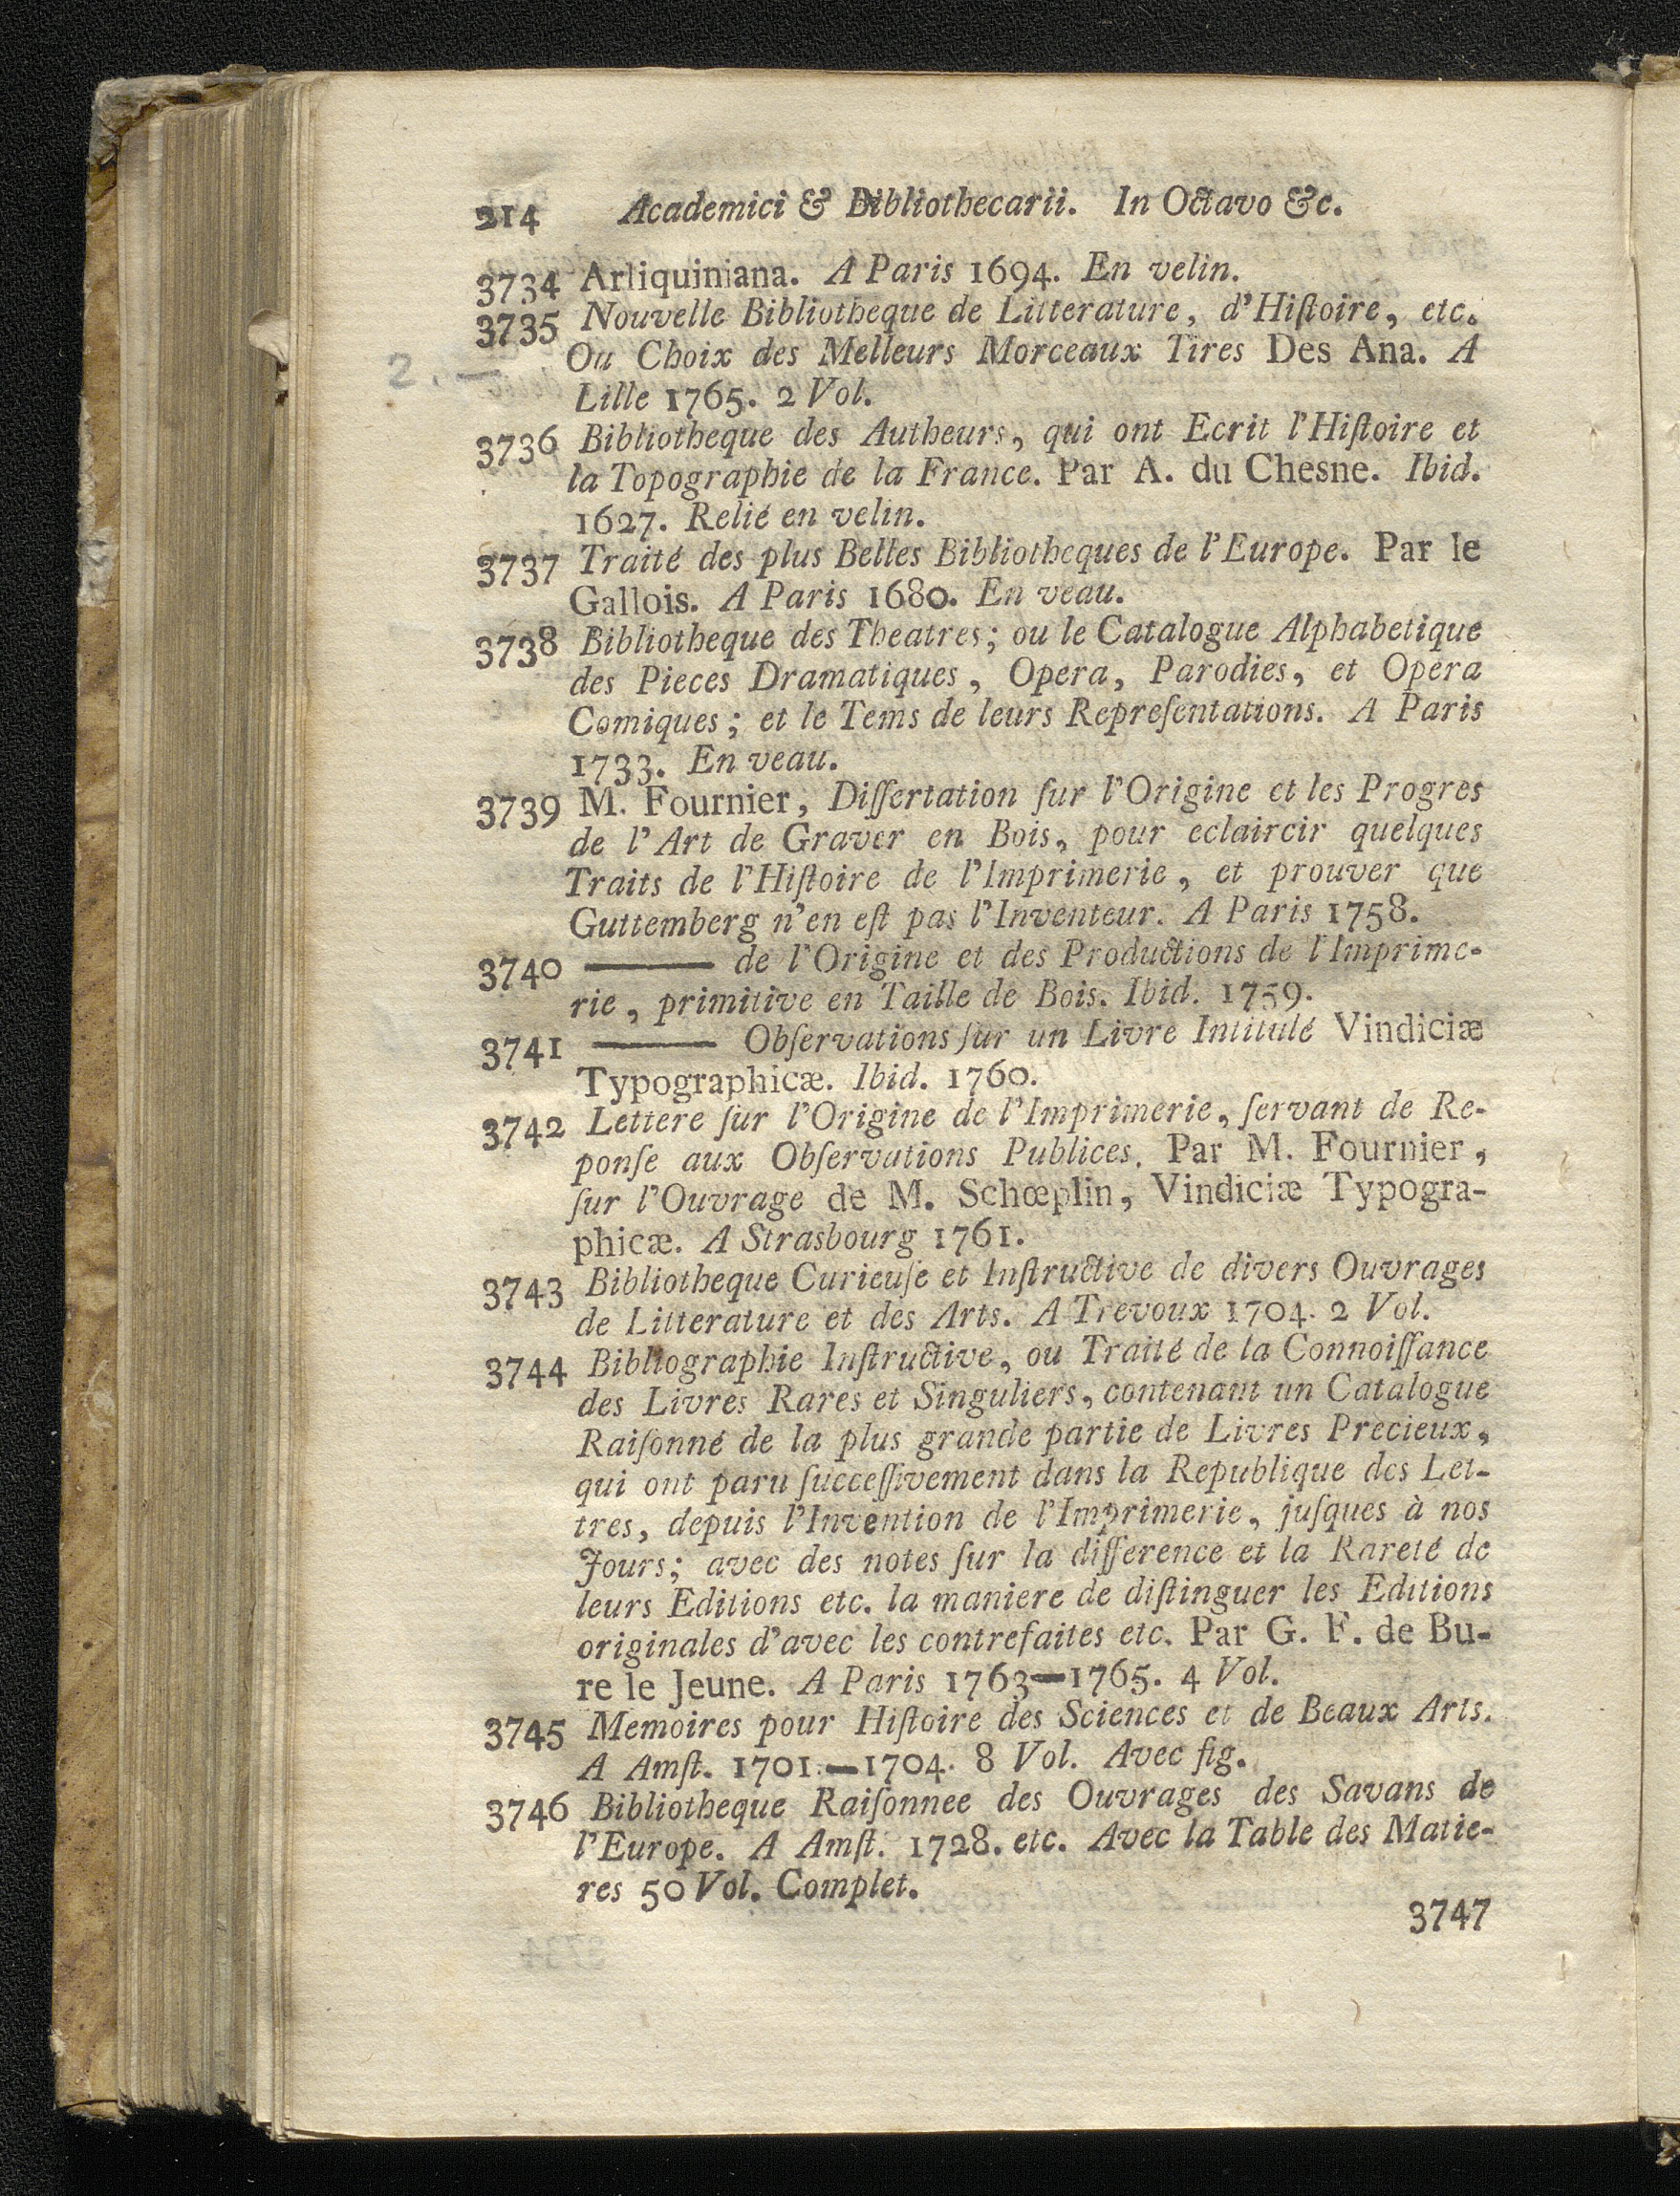 214 Academici & Bibliothecarii. In Octavo &c.
3734 Arliquiniana. A Paris 1694. En velin.
3735 Nouvelle Bibliotheque de Litterature, d'Hiſtoire, etc.
2. — Ou Choix des Melleurs Morceaux Tires Des Ana. A
Lille 1765. 2 Vol.
3736 Bibliotheque des Autheurs, qui ont Ecrit l'Hiſtoire et
la Topographie de la France. Par A. du Chesne. Ibid.
1627. Relié en velin.
3737 Traité des plus Belles Bibliotheques de l'Europe. Par le
Gallois. A Paris 1680. En veau.
3738 Bibliotheque des Theatres; ou le Catalogue Alphabetique
des Pieces Dramatiques, Opera, Parodies, et Opera
Comiques; et le Tems de leurs Repreſentations. A Paris
1733. En veau.
3739 M. Fournier, Diſſertation ſur l'Origine et les Progres
de l'Art de Graver en Bois, pour eclaircir quelques
Traits de l'Hiſtoire de l'Imprimerie, et prouver que
Guttemberg n'en eſt pas l'Inventeur. A Paris 1758.
3740 ——— de l'Origine et des Productions de l'Imprime-
rie, primitive en Taille de Bois. Ibid. 1759.
3741 ——— Obſervations ſur un Livre Intitulé Vindiciæ
Typographicæ. Ibid. 1760.
3742 Lettere ſur l'Origine de l'Imprimerie, ſervant de Re-
ponſe aux Obſervations Publices. Par M. Fournier,
ſur l'Ouvrage de M. Schœplin, Vindiciæ Typogra-
phicæ. A Strasbourg 1761.
3743 Bibliotheque Curieuſe et Inſtructive de divers Ouvrages
de Litterature et des Arts. A Trevoux 1704. 2 Vol.
3744 Bibliographie Inſtructive, ou Traité de la Connoiſſance
des Livres Rares et Singuliers, contenant un Catalogue
Raiſonné de la plus grande partie de Livres Precieux,
qui ont paru ſucceſſivement dans la Republique des Let-
tres, depuis l'Invention de l'Imprimerie, juſques à nos
Jours; avec des notes ſur la difference et la Rareté de
leurs Editions etc. la maniere de diſtinguer les Editions
originales d'avec les contrefaites etc. Par G. F. de Bu-
re le Jeune. A Paris 1763—1765. 4 Vol.
3745 Memoires pour Hiſtoire des Sciences et de Beaux Arts.
A Amſt. 1701.—1704. 8 Vol. Avec fig.
3746 Bibliotheque Raiſonnee des Ouvrages des Savans de
l'Europe. A Amſt. 1728. etc. Avec la Table des Matie-
res 50 Vol. Complet.
3747